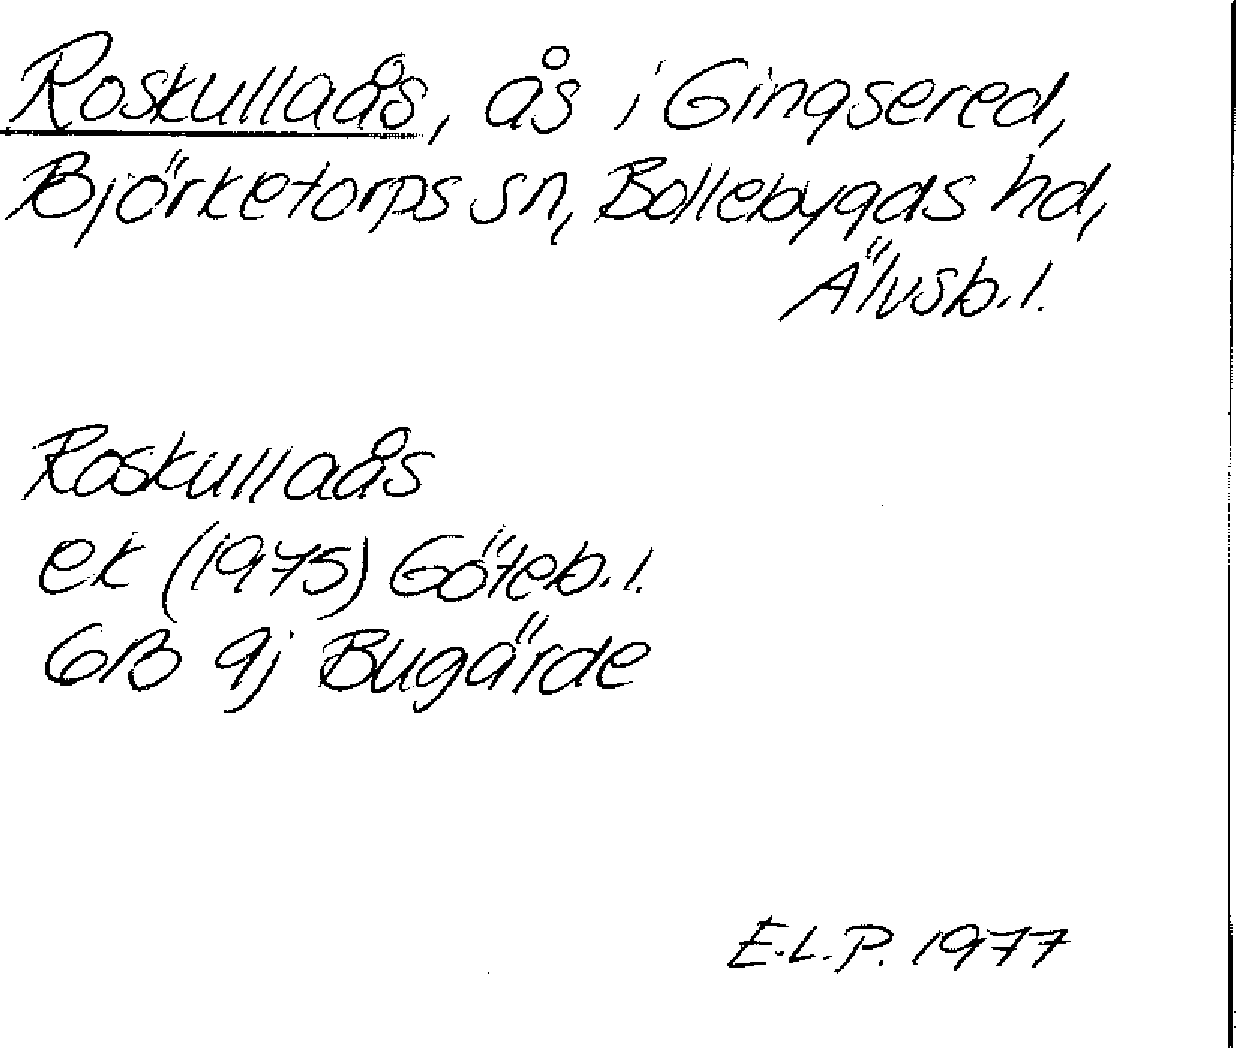 Roskullaås, ås i Gingsered,
Björketorps sn, Bollebygds hd,
Älvsb. l.
Roskullaås
ek (1975) Göteb. l.
6B 9j Bugärde
E.L.P. 1977